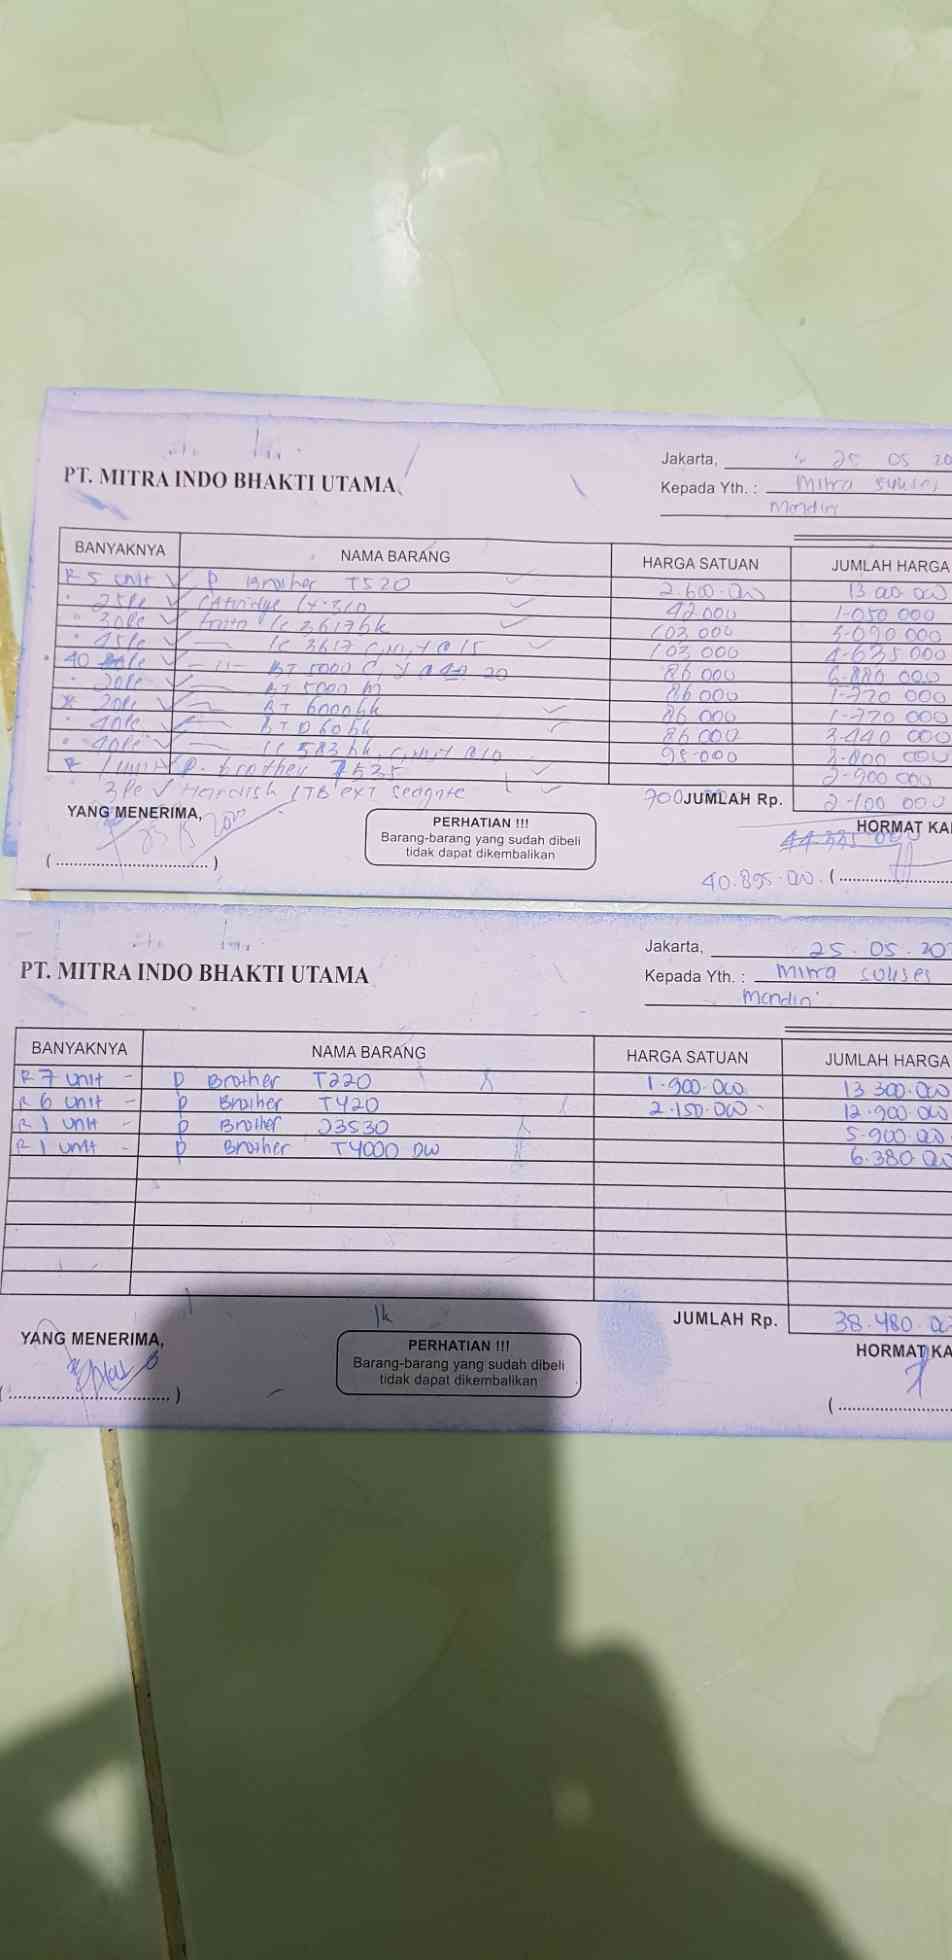 Jakarta, 25 05 20
PT. MITRA INDO BHAKTI UTAMA
Kepada Yth. : Mitra Sukses
Mandiri
BANYAKNYA NAMA BARANG HARGA SATUAN JUMLAH HARGA
R 5 unit P Brother T520 2.600.000 13 000 000
25 Pc CAtridge LX-310 42.000 1.050 000
30 Pc LC 3617 bk 103.000 3.090 000
45 Pc LC 3617 C,M,Y @ 15 103.000 4.635 000
40 Pc -"- BT 5000 C, Y @ 20 86 000 6.880 000
20 Pc BT 5000 M 86 000 1.720 000
20 Pc BT 6000 bk 86 000 1.720 000
40 Pc BT D60 bk 86 000 3.440 000
40 Pc LC 583 bk, C,M,Y @ 10 95.000 3.800 000
1 unit P. brother T535 2.900 000
3 Pc Hardisk 1TB ext Seagate 700 JUMLAH Rp. 2.100 000
YANG MENERIMA, PERHATIAN !!! HORMAT KA
Barang-barang yang sudah dibeli
tidak dapat dikembalikan
(..............................)
40.895.000. (................
Jakarta, 25. 05. 20
PT. MITRA INDO BHAKTI UTAMA
Kepada Yth. : Mitra Sukses
Mandiri
BANYAKNYA NAMA BARANG HARGA SATUAN JUMLAH HARGA
R 7 unit - P Brother T220 1.900.000 13 300.000
R 6 unit - P Brother T420 2.150.000 12.900.000
R 1 unit - P Brother J3530 5.900.000
R 1 unit - P Brother T4000 DW 6.380.000
JUMLAH Rp. 38.480.00
YANG MENERIMA, PERHATIAN !!! HORMAT KA
Barang-barang yang sudah dibeli
tidak dapat dikembalikan
(..............................) (................